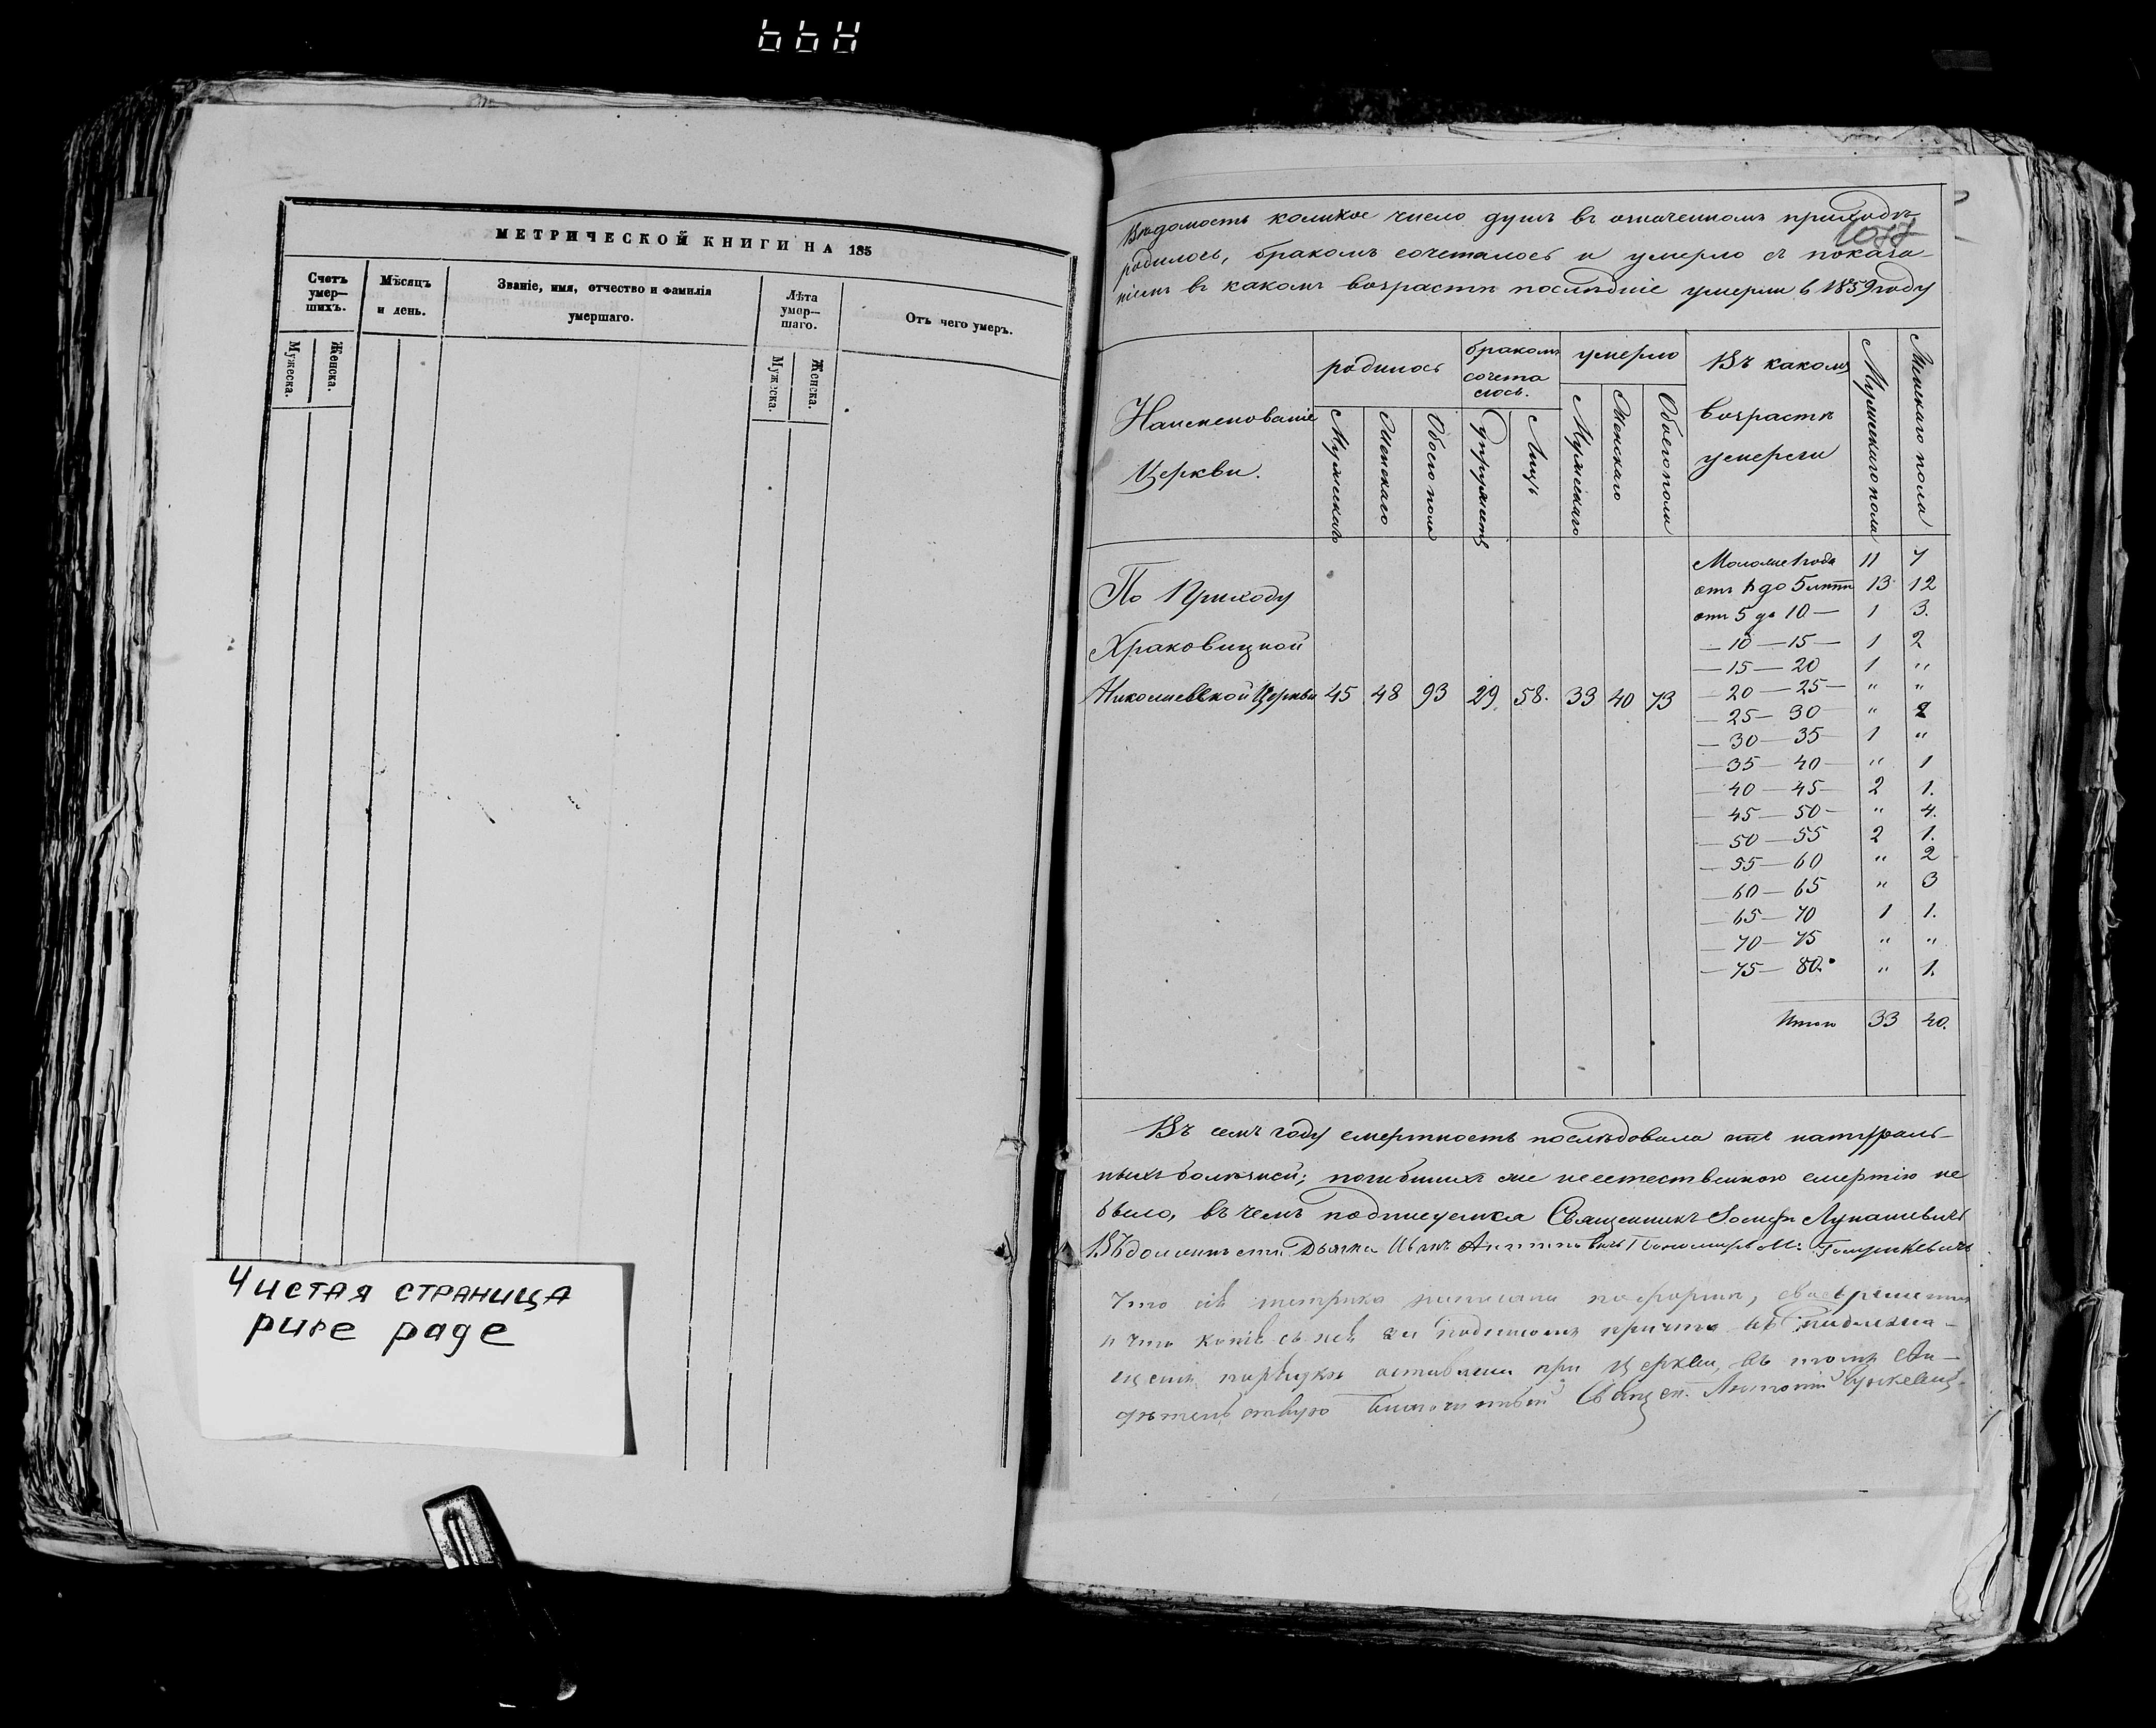 МЕТРИЧЕСКОЙ КНИГИ НА 185
Счетъ умер—шихъ.
Мѣсяцъ и день.
Званіе, имя, отчество и фамилія умершаго.
Лѣта умер—шаго.
Отъ чего умеръ.
Мужеска.
Женска.
Мужеска.
Женска.
Чистая страница
pure page
Вѣдомость коликое число душъ въ означенномъ приходѣ
родилось, бракомъ сочеталось и умерло съ показа-
ніемъ въ какомъ возрастѣ послѣдніе умерли в 1859 году
Наименованіе Церкви.
родилось
бракомъ сочеталось.
умерло
Въ какомъ возрастѣ умерли
Мужескаго пола
Женскаго пола
Мужескаго
Женскаго
Обоего пола
Супружествъ
Лицъ
Мужескаго
Женскаго
Обоего пола
По Приходу
Храковицкой
Николаевской Церкви 45 48 93 29 58. 33 40 73
Моложе 1 года 11 7
отъ 1 до 5 лѣтъ 13 12
отъ 5 до 10 — 1 3.
— 10 — 15 — 1 2
— 15 — 20 1 "
— 20 — 25 — " "
— 25 — 30 " 2
— 30 — 35 1 "
— 35 — 40 — " 1
— 40 — 45 2 1.
— 45 — 50 — " 4.
— 50 — 55 2 1.
— 55 — 60 " 2
— 60 — 65 " 3
— 65 — 70 1 1.
— 70 — 75 " "
— 75 — 80. " 1.
Итого 33 40.
Въ семъ году смертность послѣдовала отъ натураль-
ныхъ болѣзней; погибшихъ же неестественною смертію не
было, въ чемъ подписуемся Священникъ Іосифъ Лукашевичъ
Дьячка Иванъ Пономарь М.
Что сія метрика писана по формѣ,
и что копія съ нея за подписомъ причта въ надлежа-
щемъ порядкѣ оставлена при церкви, въ томъ сви-
дѣтельствую Благочинный Свящ. Антоній